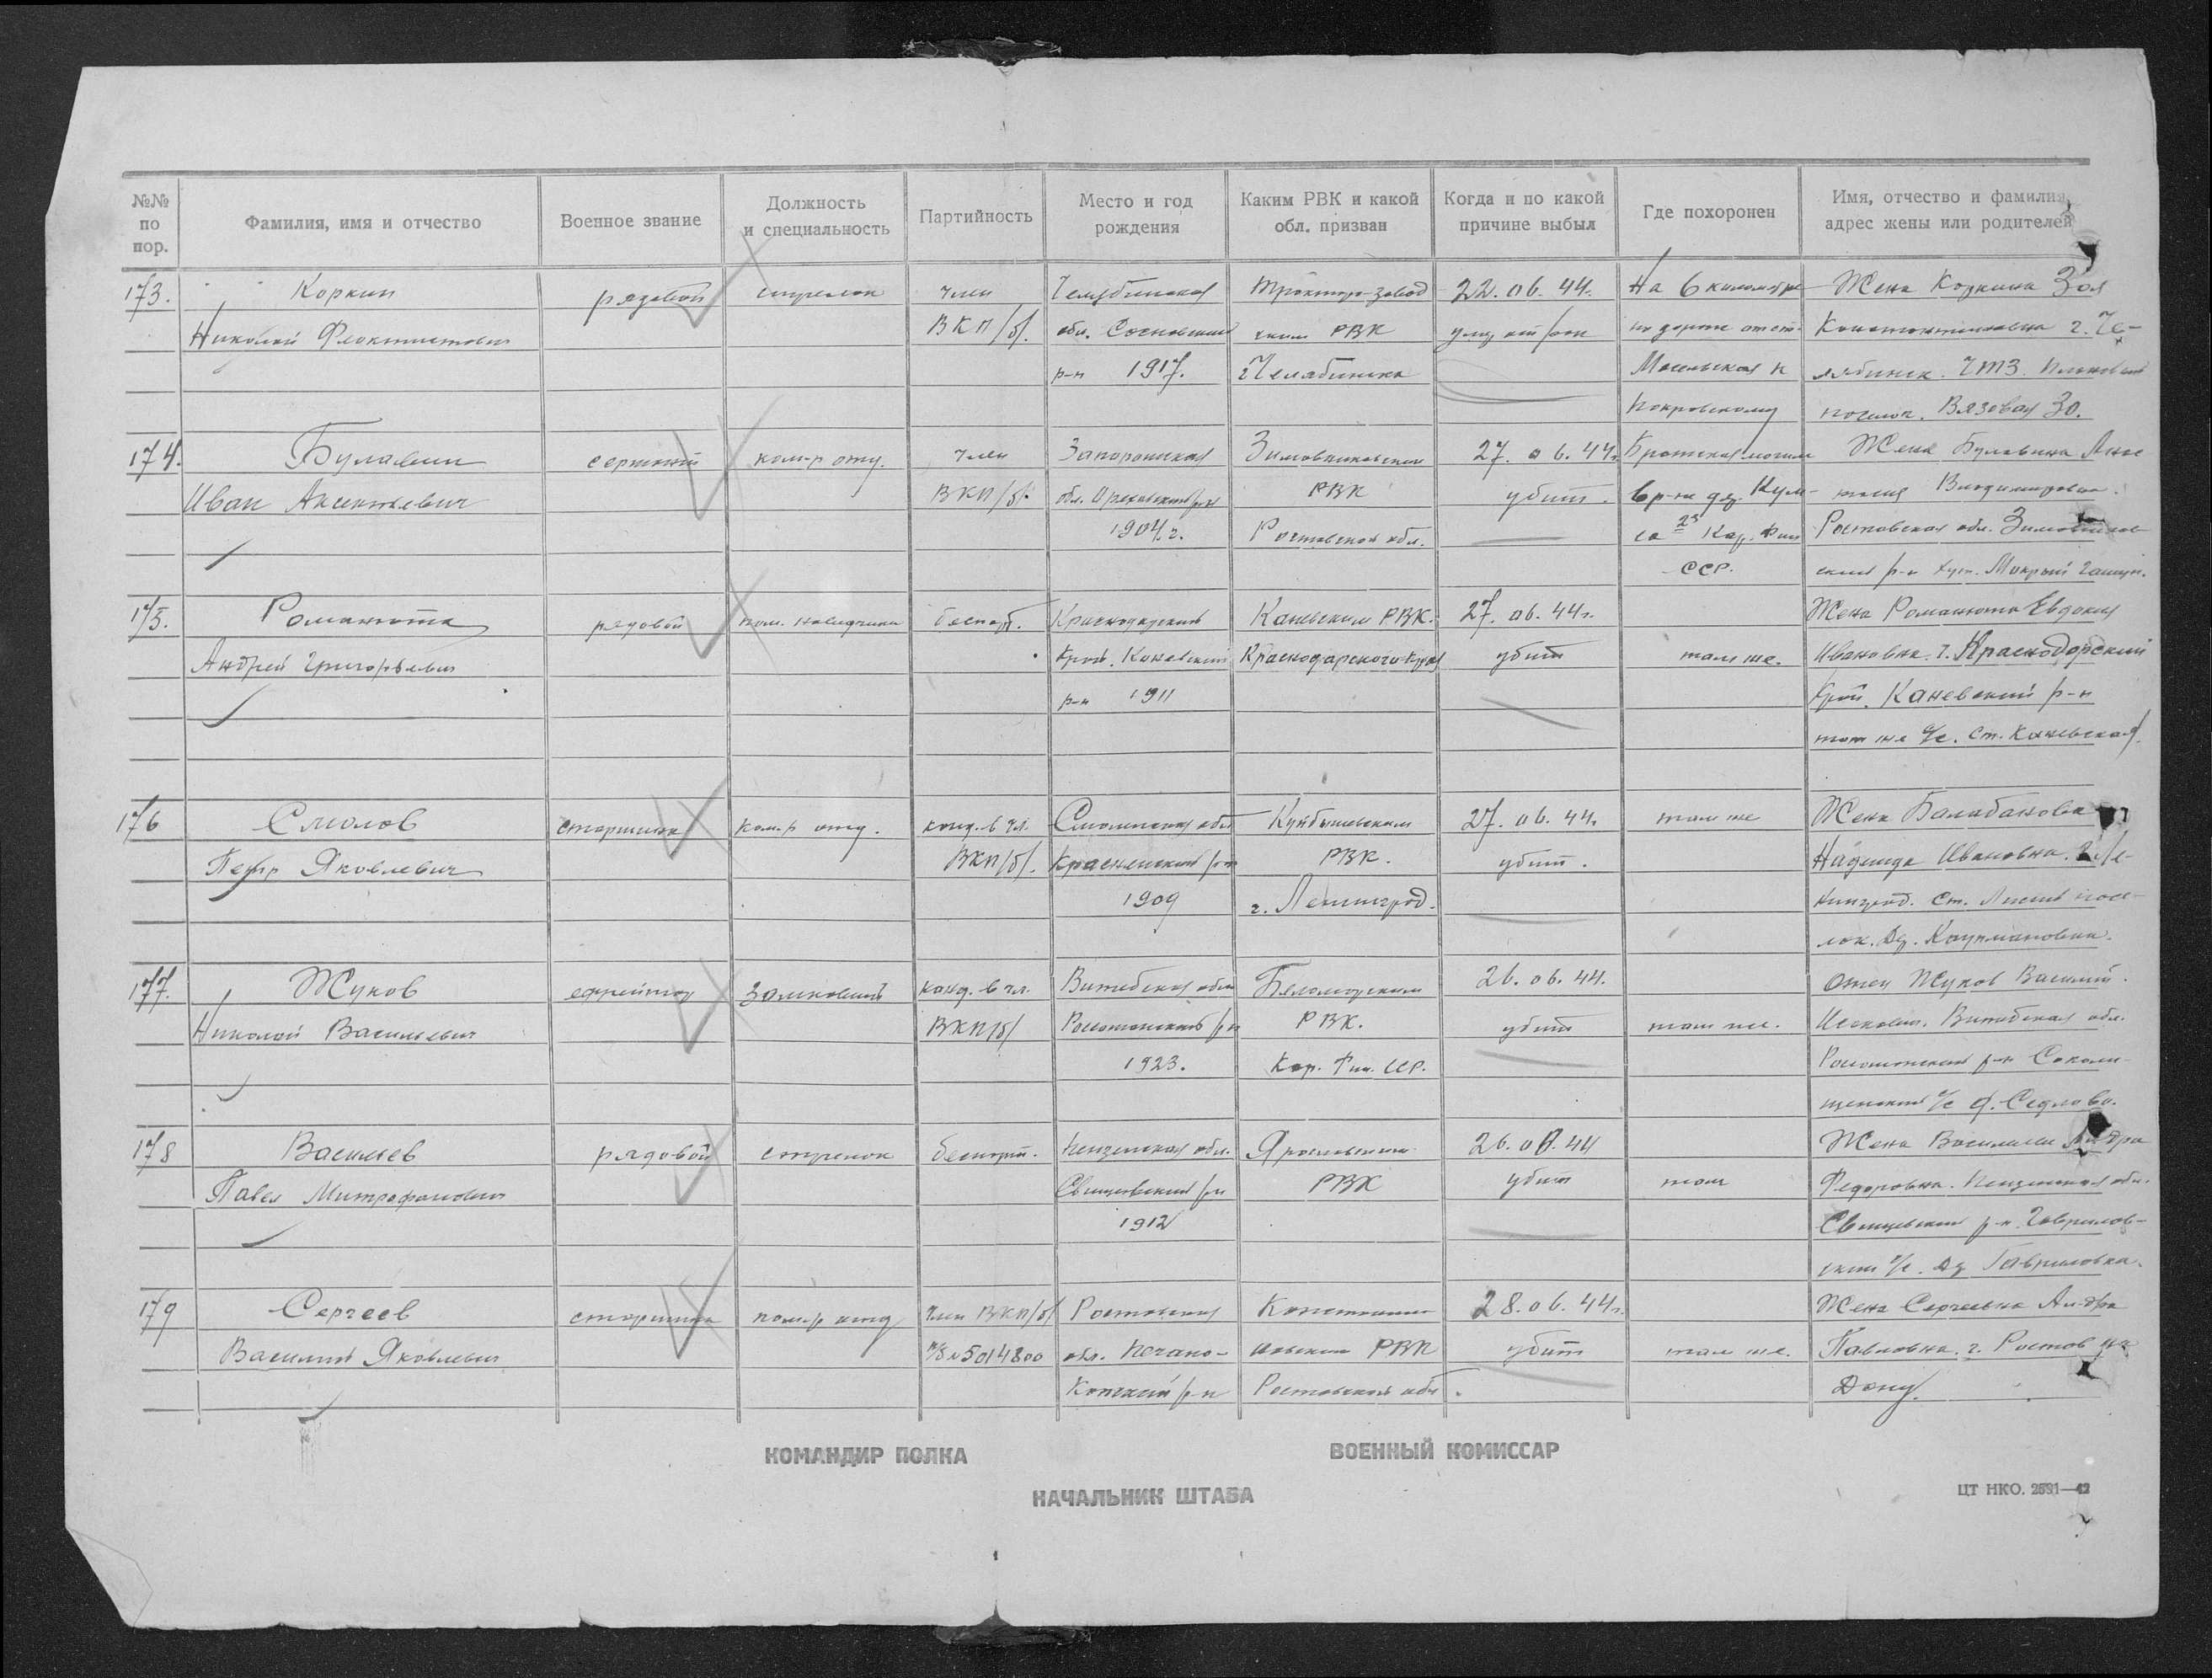 №№ по пор.
Фамилия, имя и отчество
Военное звание
Должность и специальность
Партийность
Место и год рождения
Каким РВК и какой обл. призван
Когда и по какой причине выбыл
Где похоронен
Имя, отчество и фамилия, адрес жены или родителей
173. Коркин рядовой стрелок член Челябинская Тракторо-завод 22.06.44. На 6 километре Жена Коркина Зоя
Николай Феоктистович ВКП/б/. обл. Сосновский ским РВК по дороге от ст. Константиновна г. Че-
р-н 1917. Челябинска Масельская к лябинск. ЧТЗ.
Покровскому поселок. Вязовая 30.
174. Булавин сержант ком-р отд. член Запорожская Зимовниковским 27.06.44г. Братская могила Жена Булавина Анас
Иван Аксентьевич ВКП/б/. обл. Ореховский р-н РВК убит. в р-не дер. Кум- тасия Владимировна.
1904г. Ростовской обл. са Кар. Фин Ростовская обл. Зимовников
ССР. ский р-н хут. Мокрый Гашун.
175. Романюта рядовой пом. наводчика беспарт. Краснодарский Каневским РВК. 27.06.44г. Жена Романюта Евдокия
Андрей Григорьевич Край. Каневский Краснодарского края убит там же. Ивановна. Краснодарский
р-н 1911 Край. Каневский р-н
тот же с/с. ст. Каневская.
176 Смолов старшина ком-р отд. канд. в чл. Смоленская обл Куйбышевским 27.06.44. там же Жена Балабанова
Петр Яковлевич ВКП/б/. Красненский р-н РВК. убит. Надежда Ивановна. г. Ле-
1909 г. Ленинград. нинград. ст. посе-
лок. Дер.
177. Жуков ефрейтор Замковый канд. в чл. Витебская обл Беломорским 26.06.44. отец Жуков Василий.
Николай Васильевич ВКП/б/ Россонский р-н РВК. убит там же. Витебская обл.
1923. Кар. Фин. ССР. Россонский р-н Соколи-
щенский с/с д. Седлово.
178 Васильев рядовой стрелок беспарт. Пензенская обл. Ярославским 26.06.44 Жена Васильева
Павел Митрофанович Свищевский р-н РВК убит там Федоровна. Пензенская обл.
1912 Свищевский р-н. Гаврилов-
ский с/с. Дер Гавриловка.
179 Сергеев старшина пом-р отд Член ВКП/б/ Ростовская Константи- 28.06.44г. Жена Сергеевна Ал-дра
Василий Яковлевич п/б №5014800 обл. новским РВК убит там же. Павловна. г. Ростов на
р-н Ростовской обл. Дону.
КОМАНДИР ПОЛКА
ВОЕННЫЙ КОМИССАР
НАЧАЛЬНИК ШТАБА
ЦТ НКО. 2591—42